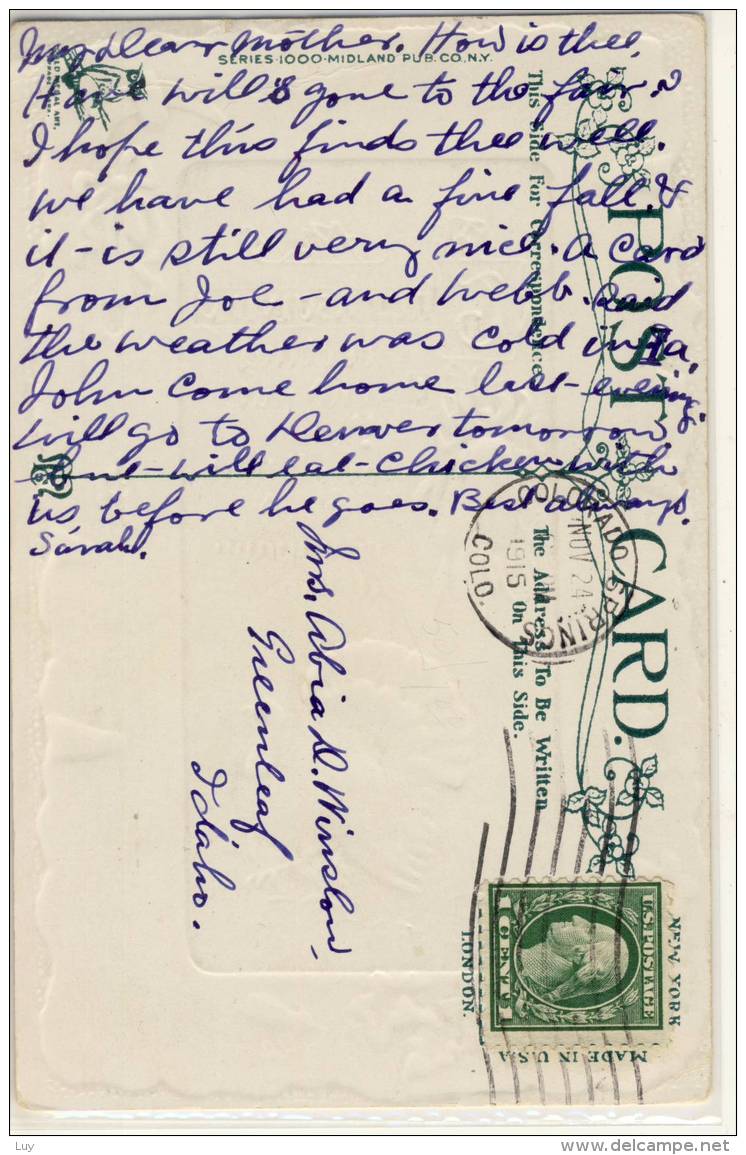 My Dear Mother. How is thee,
SERIES-1000-MIDLAND PUB. CO., N.Y.
Have Will's gone to the fair?
I hope this finds thee well.
we have had a fine fall. &
it-is still very nice. A card
from Joe-and Webb. said
the weather was cold in Ia,
John come home last-evening.
Will go to Denver tomorrow
but-will eat-chicken with
us before he goes. Best always.
Sarah.
POST CARD.
This Side For Correspondence
The Address To Be Written
On This Side.
COLORADO SPRINGS
NOV 24
1915
COLO.
Mrs. Abia D. Winslow,
Greenleaf
Idaho.
U.S. POSTAGE
1 CENT 1
NEW YORK
LONDON.
MADE IN U.S.A
Luy
delcampe.net